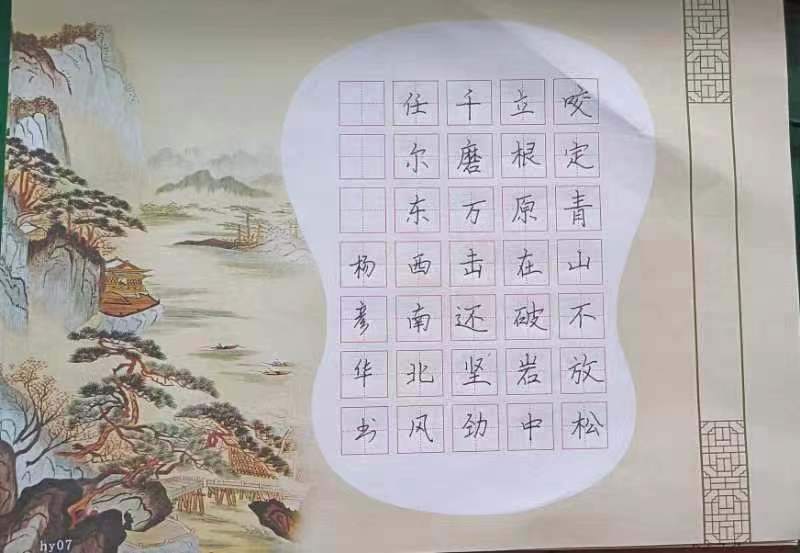 咬定青山不放松
立根原在破岩中
千磨万击还坚劲
任尔东西南北风
杨彦华书
hy07